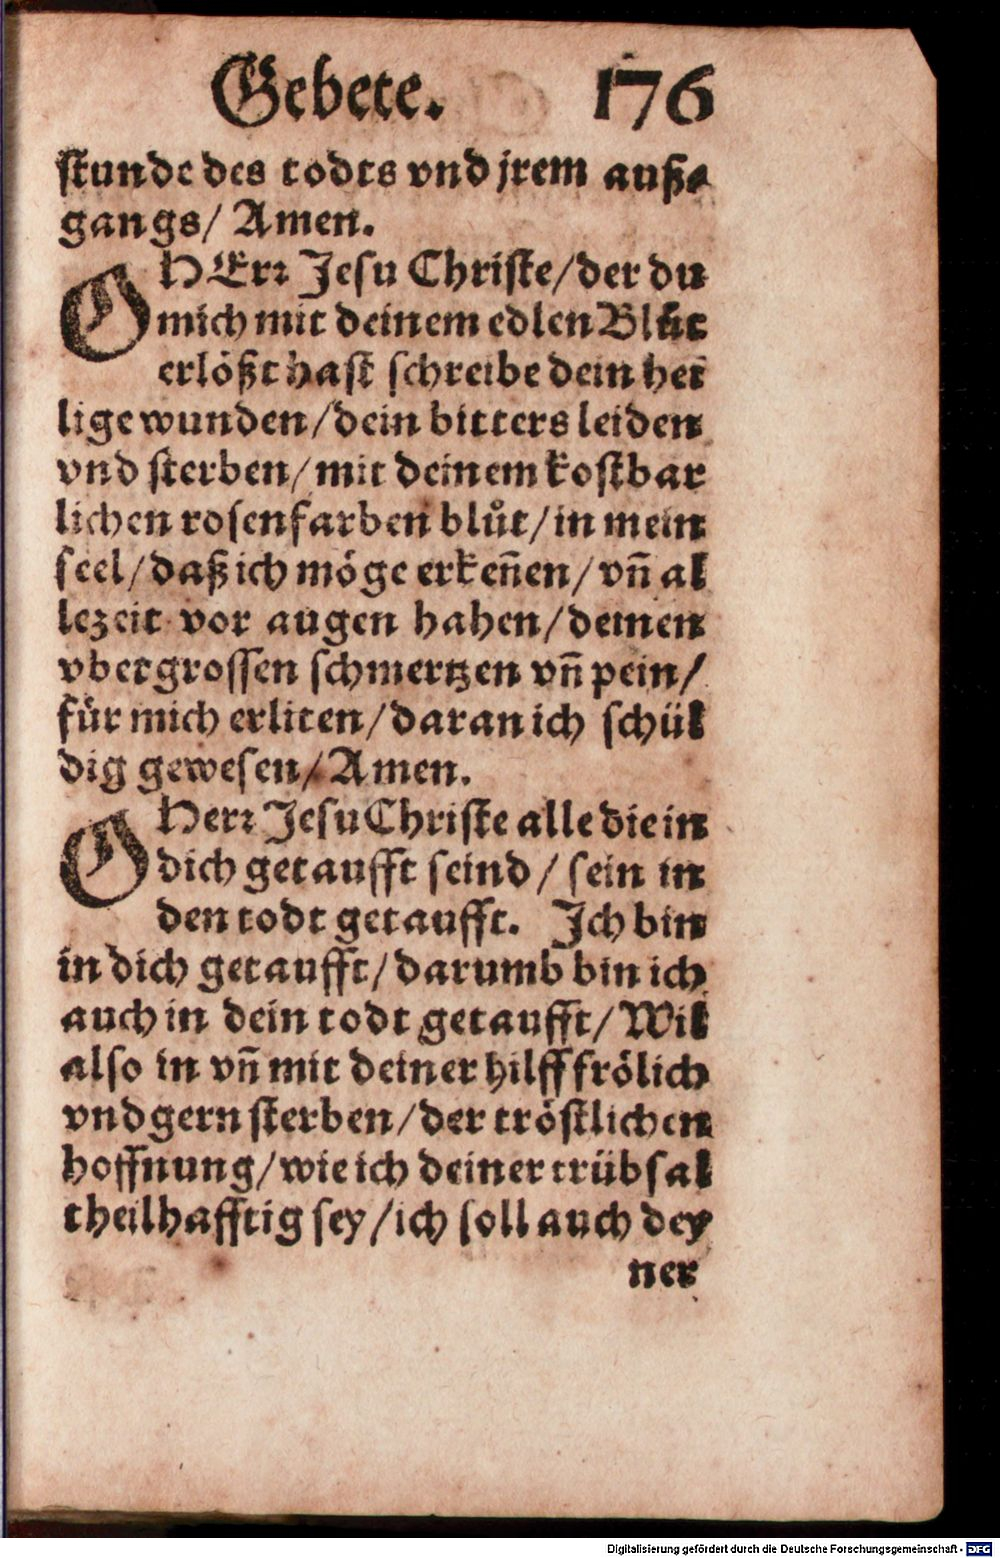 Gebete. 176
stunde des todts vnd jrem auß⸗
gangs/ Amen.
O HErꝛ Jesu Christe/der du
mich mit deinem edlen Blůt
erlößt hast schreibe dein hei
lige wunden/dein bitters leiden
vnd sterben/mit deinem kostbar
lichen rosenfarben blůt/in mein
seel/daß ich möge erkeñen/vñ al
lezeit vor augen hahen/deinen
vbergrossen schmertzen vñ pein/
für mich erliten/daran ich schül
dig gewesen/Amen.
O Herꝛ Jesu Christe alle die in
dich getaufft seind/ sein in
den todt getaufft. Ich bin
in dich getaufft/darumb bin ich
auch in dein todt getaufft/Wil
also in vñ mit deiner hilff frölich
vnd gern sterben/der tröstlichen
hoffnung/wie ich deiner trübsal
theilhafftig sey/ich soll auch dey
ner
Digitalisierung gefördert durch die Deutsche Forschungsgemeinschaft - DFG